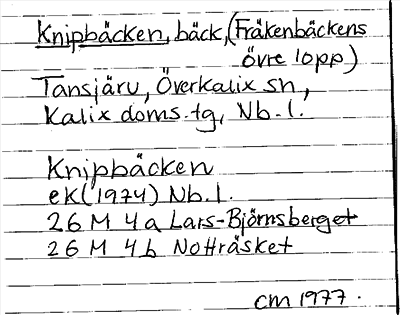 Knipbäcken, bäck, (Fräkenbäckens
övre lopp)
Tansjärv, Överkalix sn,
Kalix doms. tg, Nb. l.
Knipbäcken
ek (1974) Nb. l.
26 M 4a Lars-Björnsberget
26 M 4b Nottråsket
cm 1977.